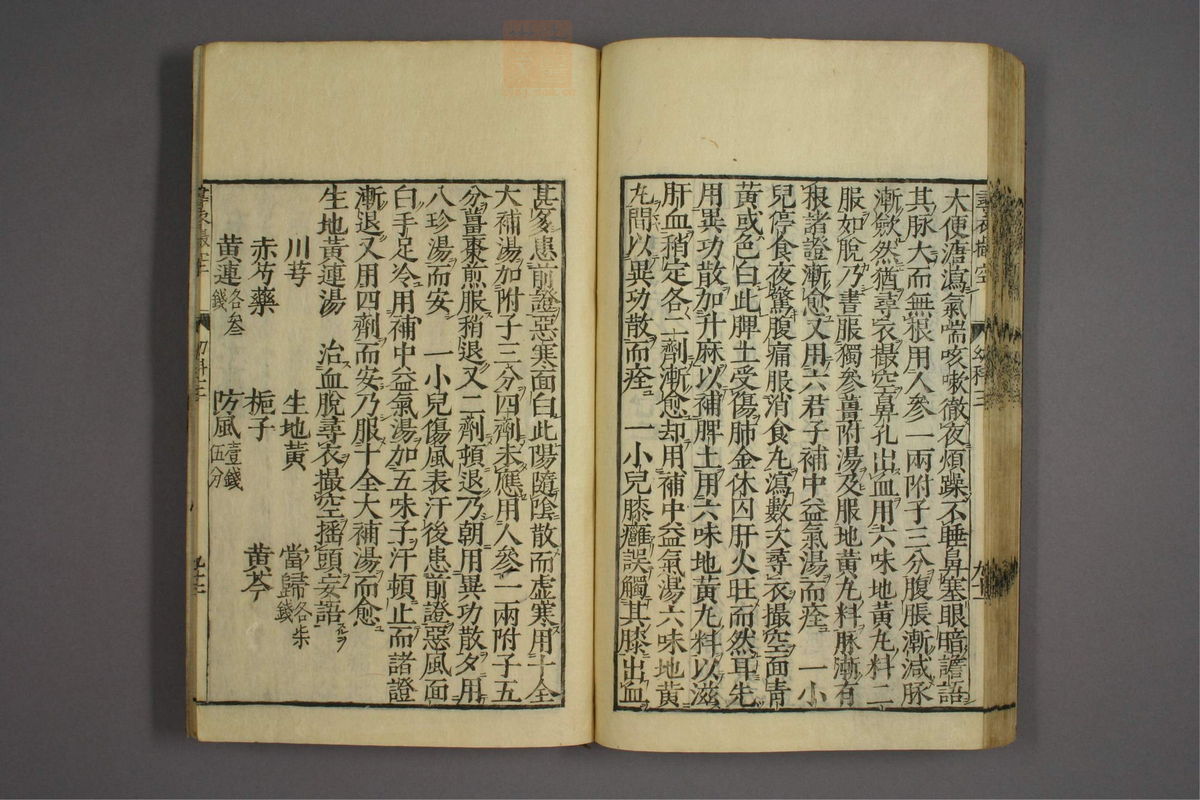 尋衣撮空 幼科
大便溏瀉氣喘咳嗽徹夜煩躁不睡鼻塞眼暗譫語
其脉大而無根用人參一兩附子三分腹脹漸減脉
漸斂然猶尋衣撮空鼻孔出血用六味地黃丸料二
服如脫乃晝服獨參薑附湯及服地黃丸料脉漸有
根諸證漸愈又用六君子補中益氣湯而痊 一小
兒停食夜驚腹痛服消食丸瀉數次尋衣撮空面青
黃或色白此脾土受傷肺金休囚肝火旺而然耳先
用異功散加升麻以補脾土用六味地黃丸料以滋
肝血稍定各二劑漸愈却用補中益氣湯六味地黃
丸間以異功散而痊 一小兒膝癰誤觸其膝出血
甚多患前證惡寒面白此陽隨陰散而虛寒用十全
大補湯加附子三分四劑未應用人參一兩附子五
分薑棗煎服稍退又二劑頓退乃朝用異功散夕用
八珍湯而安 一小兒傷風表汗後患前證惡風面
白手足冷用補中益氣湯加五味子汗頓止而諸證
漸退又用四劑而安乃服十全大補湯而愈
生地黃連湯 治血脫尋衣撮空搖頭妄語
川芎 生地黃 當歸各柒錢
赤芍藥 梔子 黃芩
黃連各叁錢 防風壹錢伍分